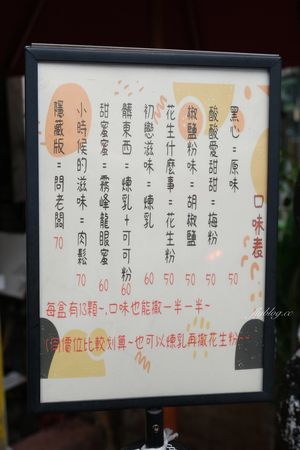 口味表
黑心=原味 50
酸酸愛甜甜=梅粉 50
椒鹽粉味=胡椒鹽 50
花生什麼事=花生粉 50
初戀滋味=煉乳 60
髒東西=煉乳+可可粉 60
甜蜜蜜=霧峰龍眼蜜 60
小時候的滋味=肉鬆 70
隱藏版=問老闆 70
每盒有13顆~,口味也能撒一半一半~
(同價位比較划算~也可以煉乳再撒花生粉~~